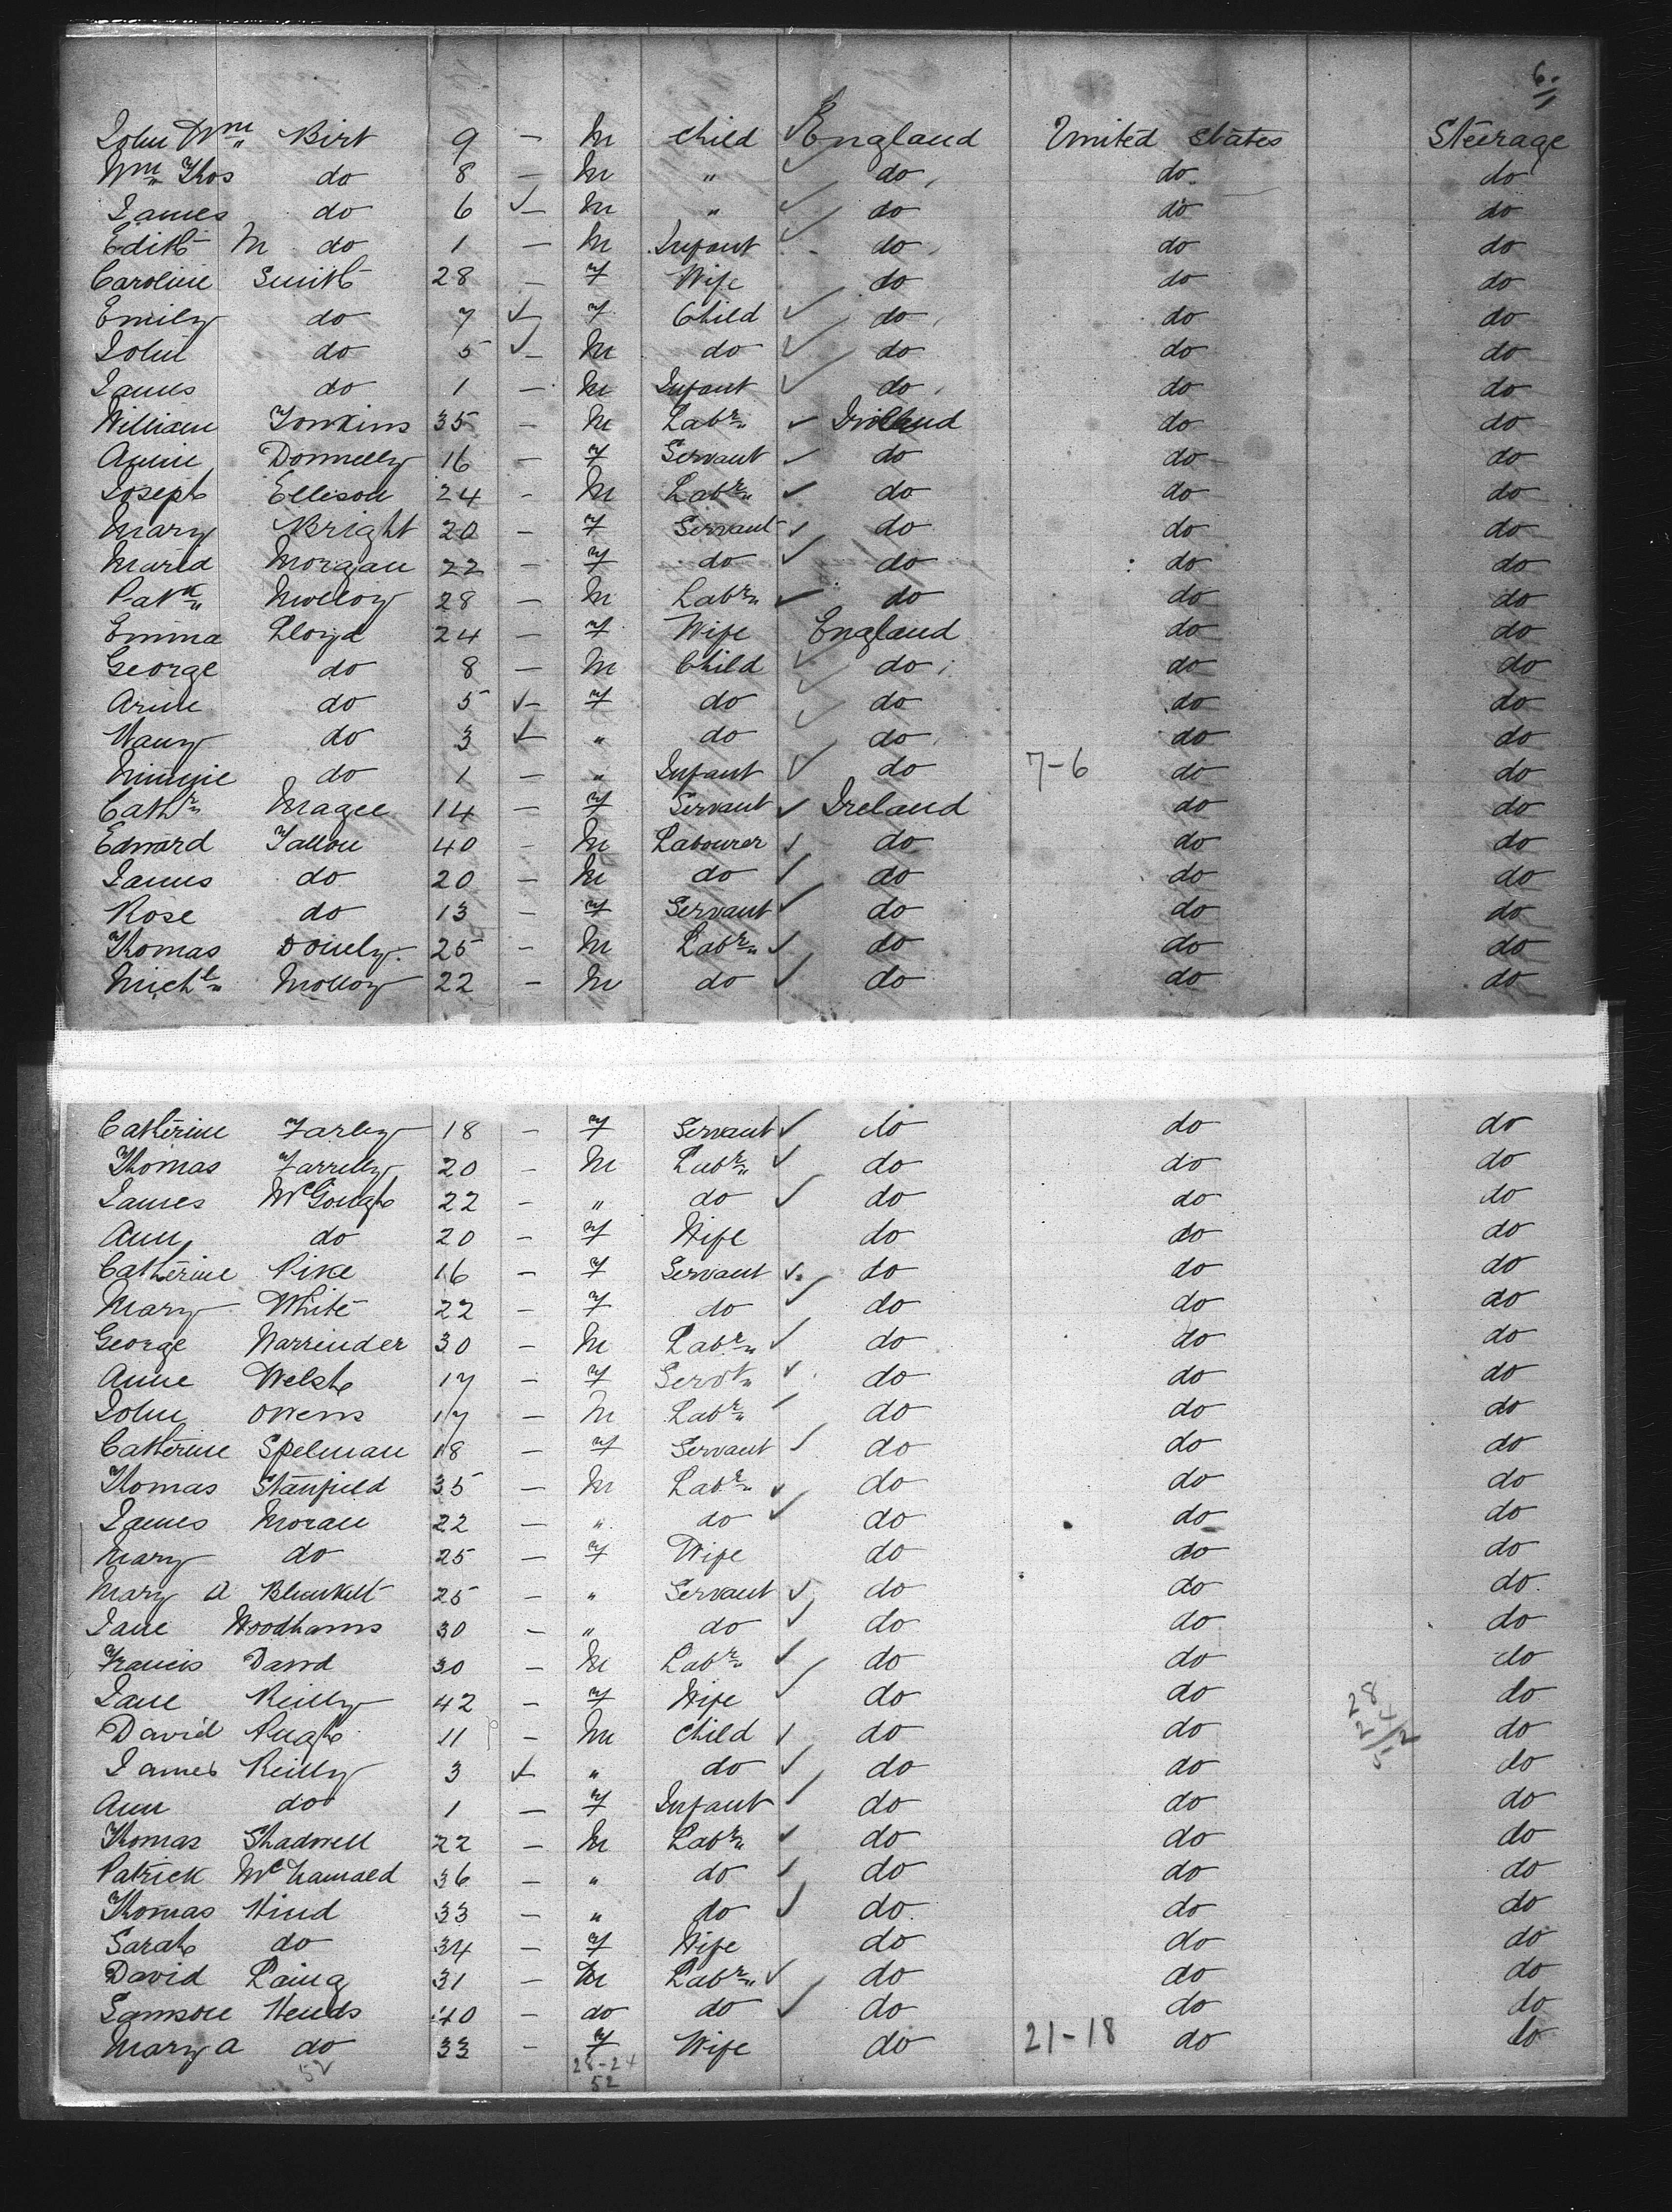 6.
John Wm Birt 9 — M child ✓ England United States Steerage
Wm Thos do 8 — M " ✓ do do do
James do 6 ✓— M " ✓ do do do
Edith M do 1 — M Infant ✓ do do do
Caroline Smith 28 — F Wife do do do
Emily do 7 ✓— F Child ✓ do do do
John do 5 ✓— M do ✓ do do do
James do 1 — M Infant ✓ do do do
William Tonkins 35 — M Labr ✓ do do
Annie Donnelly 16 — F Servant ✓ do do do
Joseph Ellison 24 — M Labr ✓ do do do
Mary Bright 20 — F Servant ✓ do do do
Maria Morgan 22 — F do ✓ do do do
Patk Molloy 28 — M Labr ✓ do do do
Emma Lloyd 24 — F Wife England do do
George do 8 — M Child ✓ do do do
Annie do 5 ✓— F do ✓ do do do
do 3 ✓— " do ✓ do do do
Minnie do 1 — " Infant ✓ do 7-6 do do
Cathn Magee 14 — F Servant ✓ Ireland do do
Edward Fallon 40 — M Labourer ✓ do do do
James do 20 — M do ✓ do do do
Rose do 13 — F Servant ✓ do do do
Thomas Donely 25 — M Labr ✓ do do do
Michl Molloy 22 — M do ✓ do do do
Catherine Farley 18 — F Servant ✓ do do do
Thomas Farrelly 20 — M Labr ✓ do do do
James McGough 22 — " do ✓ do do do
Ann do 20 — F Wife do do do
Catherine Pike 16 — F Servant ✓ do do do
Mary White 22 — F do ✓ do do do
George Warrinder 30 — M Labr ✓ do do do
Anne Welsh 17 — F Servt ✓ do do do
John Owens 17 — M Labr ✓ do do do
Catherine Spelman 18 — F Servant ✓ do do do
Thomas Stanfield 35 — M Labr ✓ do do do
James Moran 22 — " do ✓ do do do
Mary do 25 — F Wife do do do
Mary A 25 — " Servant ✓ do do do
Jane Woodhams 30 — " do ✓ do do do
Francis David 30 — M Labr ✓ do do do
Jane Reilly 42 — F Wife ✓ do do do
David Pugh 11 — M Child ✓ do do do
James Reilly 3 ✓— " do ✓ do do do
Ann do 1 — F Infant ✓ do do do
Thomas Shadwell 22 — M Labr ✓ do do do
Patrick 36 — " do ✓ do do do
Thomas Hind 33 — " do ✓ do do do
Sarah do 34 — F Wife do do do
David Laing 31 — M Labr ✓ do do do
Samson Hends 40 — do do ✓ do do do
Mary A do 33 — F Wife do 21-18 do do
52 28-24
52